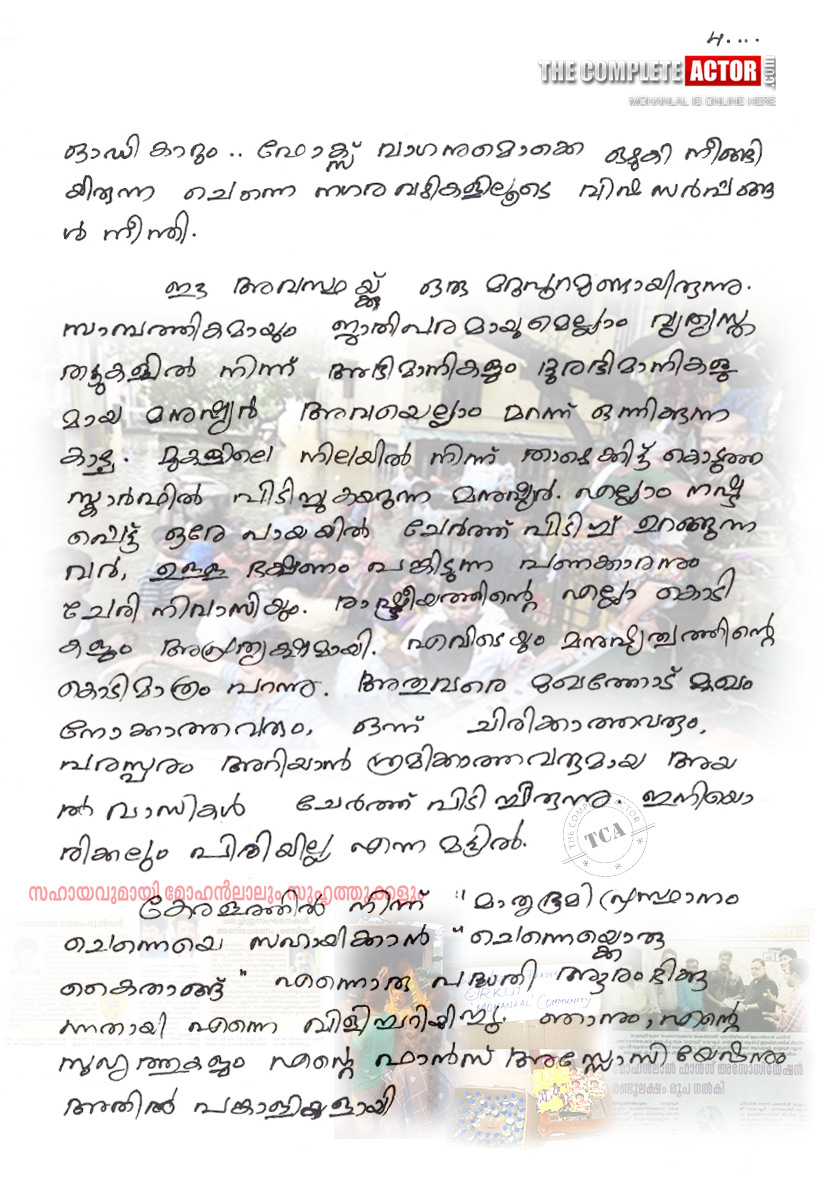 4....
THE COMPLETE ACTOR .com
MOHANLAL IS ONLINE HERE
ഓഡി കാറും .. ഫോക്സ് വാഗനുമൊക്കെ ഒഴുകി നീങ്ങി
യിരുന്ന ചെന്നൈ നഗര വഴികളിലൂടെ വിഷ സർപ്പങ്ങ
ൾ നീന്തി.
ഈ അവസ്ഥയ്ക്ക് ഒരു മറുപുറമുണ്ടായിരുന്നു.
സാമ്പത്തികമായും ജാതിപരമായുമെല്ലാം വ്യത്യസ്ത
തട്ടുകളിൽ നിന്ന് അഭിമാനികളും ദുരഭിമാനികളു
മായ മനുഷ്യൻ അവയെല്ലാം മറന്ന് ഒന്നിക്കുന്ന
കാഴ്ച. മുകളിലെ നിലയിൽ നിന്ന് താഴെക്കിട്ട് കൊടുത്ത
സ്കാർഫിൽ പിടിച്ചുകയറുന്ന മനുഷ്യൻ. എല്ലാം നഷ്ട
പെട്ട് ഒരേ പായയിൽ ചേർത്ത് പിടിച്ച് ഉറങ്ങുന്ന
വർ, ഉള്ള ഭക്ഷണം പങ്കിടുന്ന പണക്കാരനും
ചേരി നിവാസിയും. രാഷ്ട്രീയത്തിന്റെ എല്ലാ കൊടി
കളും അപ്രത്യക്ഷമായി. എവിടെയും മനുഷ്യത്വത്തിന്റെ
കൊടിമാത്രം പറന്നു. അതുവരെ മുഖത്തോട് മുഖം
നോക്കാത്തവരും, ഒന്ന് ചിരിക്കാത്തവരും,
പരസ്പരം അറിയാൻ ശ്രമിക്കാത്തവരുമായ അയ
ൽ വാസികൾ ചേർത്ത് പിടിച്ചിരുന്നു. ഇനിയൊ
രിക്കലും പിരിയില്ല എന്ന മട്ടിൽ.
THE COMPLETE ACTOR
TCA
സഹായവുമായി മോഹൻലാലും സുഹൃത്തുക്കളും
കേരളത്തിൽ നിന്ന് "മാതൃഭൂമി പ്രസ്ഥാനം
ചെന്നൈയെ സഹായിക്കാൻ "ചെന്നൈയ്ക്കൊരു
കൈതാങ്ങ്" എന്നൊരു പദ്ധതി ആരംഭിക്കു
ന്നതായി എന്നെ വിളിച്ചറിയിച്ചു. ഞാനും, എന്റെ
സുഹൃത്തുകളും എന്റെ ഫാൻസ് അസ്സോസിയേഷനും
അതിൽ പങ്കാളികളായി
ORKUT
MOHANLAL COMMUNITY
മോഹൻലാൽ ഫാൻസ് അസോസിയേഷൻ
രണ്ടുലക്ഷം രൂപ നൽകി